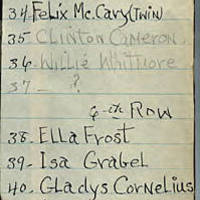 34 Felix Mc. Cary (Twin
35 Clinton Cameron
36 - Willie Whitmore
37 - ?
6-th Row
38 - Ella Frost
39 - Isa Grabel
40 - Gladys Cornelius